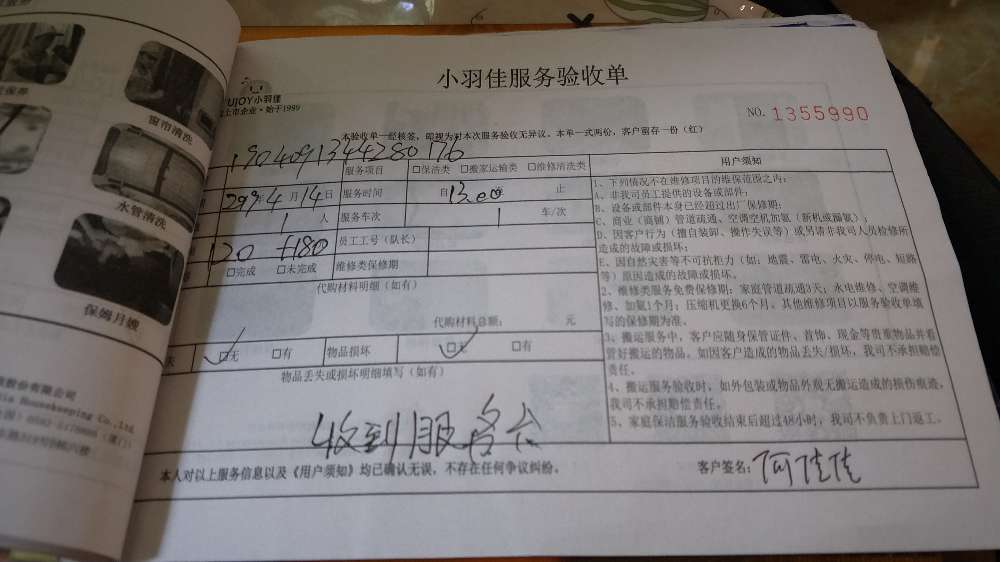 窗帘清洗
水管清洗
保姆月嫂
小羽佳服务验收单
UJOY小羽佳
上市企业·始于1999
NO. 1355990
本验收单一经核签，即视为对本次服务验收无异议。本单一式两份，客户留存一份（红）
服务项目 □保洁类 □搬家运输类 □维修清洗类
年4月14日 服务时间 自13:00 止
1 人 服务车次 车/次
120 +180 员工工号（队长）
□完成 □未完成 维修类保修期
代购材料明细（如有）
代购材料总额： 元
□无 □有 物品损坏 □无 □有
物品丢失或损坏明细填写（如有）
收到服务台
本人对以上服务信息以及《用户须知》均已确认无误，不存在任何争议纠纷。
客户签名：何佳佳
用户须知
1、下列情况不在维修项目的维保范围之内：
A、非我司员工提供的设备或部件；
B、设备或部件本身已经超过出厂保修期；
C、商业（商铺）管道疏通、空调空机加氨（新机或漏氨）；
D、因客户行为（擅自装卸、操作失误等）或另请非我司人员检修所
造成的故障或损坏；
E、因自然灾害等不可抗拒力（如：地震、雷电、火灾、停电、短路
等）原因造成的故障或损坏。
2、维修类服务免费保修期：家庭管道疏通3天，水电维修、空调维
修、加氨1个月；压缩机更换6个月。其他维修项目以服务验收单填
写的保修期为准。
3、搬运服务中，客户应随身保管证件、首饰、现金等贵重物品并看
管好搬运的物品。如因客户造成的物品丢失/损坏，我司不承担赔偿
责任。
4、搬运服务验收时，如外包装或物品外观无搬运造成的损伤痕迹，
我司不承担赔偿责任。
5、家庭保洁服务验收结束后超过48小时，我司不负责上门返工。